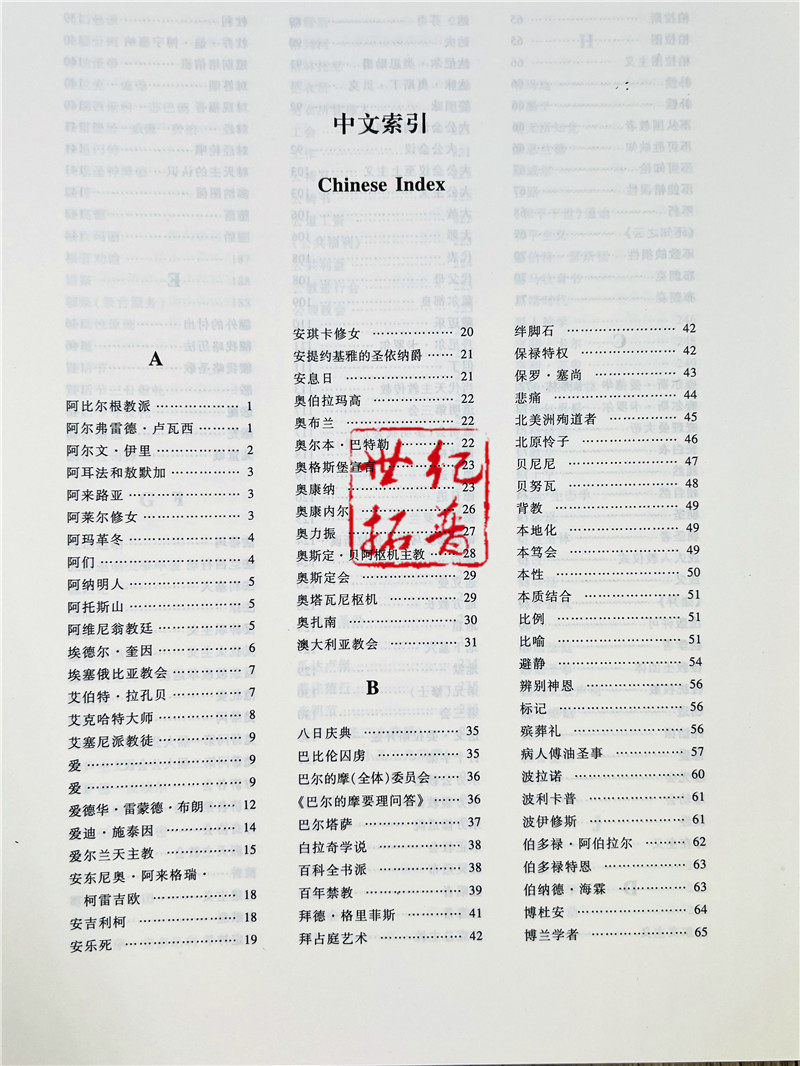 中文索引
Chinese Index
A
阿比尔根教派 ………… 1
阿尔弗雷德·卢瓦西 ………… 1
阿尔文·伊里 ………… 2
阿耳法和敖默加 ………… 3
阿来路亚 ………… 3
阿莱尔修女 ………… 3
阿玛革冬 ………… 4
阿们 ………… 4
阿纳明人 ………… 5
阿托斯山 ………… 5
阿维尼翁教廷 ………… 5
埃德尔·奎因 ………… 6
埃塞俄比亚教会 ………… 7
艾伯特·拉孔贝 ………… 7
艾克哈特大师 ………… 8
艾塞尼派教徒 ………… 9
爱 ………… 9
爱 ………… 9
爱德华·雷蒙德·布朗 ………… 12
爱迪·施泰因 ………… 14
爱尔兰天主教 ………… 15
安东尼奥·阿来格瑞·
柯雷吉欧 ………… 18
安吉利柯 ………… 18
安乐死 ………… 19
安琪卡修女 ………… 20
安提约基雅的圣依纳爵 ………… 21
安息日 ………… 21
奥伯拉玛高 ………… 22
奥布兰 ………… 22
奥尔本·巴特勒 ………… 22
奥格斯堡宣言 ………… 23
奥康纳 ………… 23
奥康内尔 ………… 26
奥力振 ………… 27
奥斯定·贝阿枢机主教 ………… 28
奥斯定会 ………… 29
奥塔瓦尼枢机 ………… 29
奥扎南 ………… 30
澳大利亚教会 ………… 31
B
八日庆典 ………… 35
巴比伦囚虏 ………… 35
巴尔的摩(全体)委员会 ………… 36
《巴尔的摩要理问答》 ………… 36
巴尔塔萨 ………… 37
白拉奇学说 ………… 38
百科全书派 ………… 38
百年禁教 ………… 39
拜德·格里菲斯 ………… 41
拜占庭艺术 ………… 42
绊脚石 ………… 42
保禄特权 ………… 42
保罗·塞尚 ………… 43
悲痛 ………… 44
北美洲殉道者 ………… 45
北原怜子 ………… 46
贝尼尼 ………… 47
贝努瓦 ………… 48
背教 ………… 49
本地化 ………… 49
本笃会 ………… 49
本性 ………… 50
本质结合 ………… 51
比例 ………… 51
比喻 ………… 51
避静 ………… 54
辨别神恩 ………… 56
标记 ………… 56
殡葬礼 ………… 56
病人傅油圣事 ………… 57
波拉诺 ………… 60
波利卡普 ………… 61
波伊修斯 ………… 61
伯多禄·阿伯拉尔 ………… 62
伯多禄特恩 ………… 63
伯纳德·海霖 ………… 63
博杜安 ………… 64
博兰学者 ………… 65
世纪
拓普